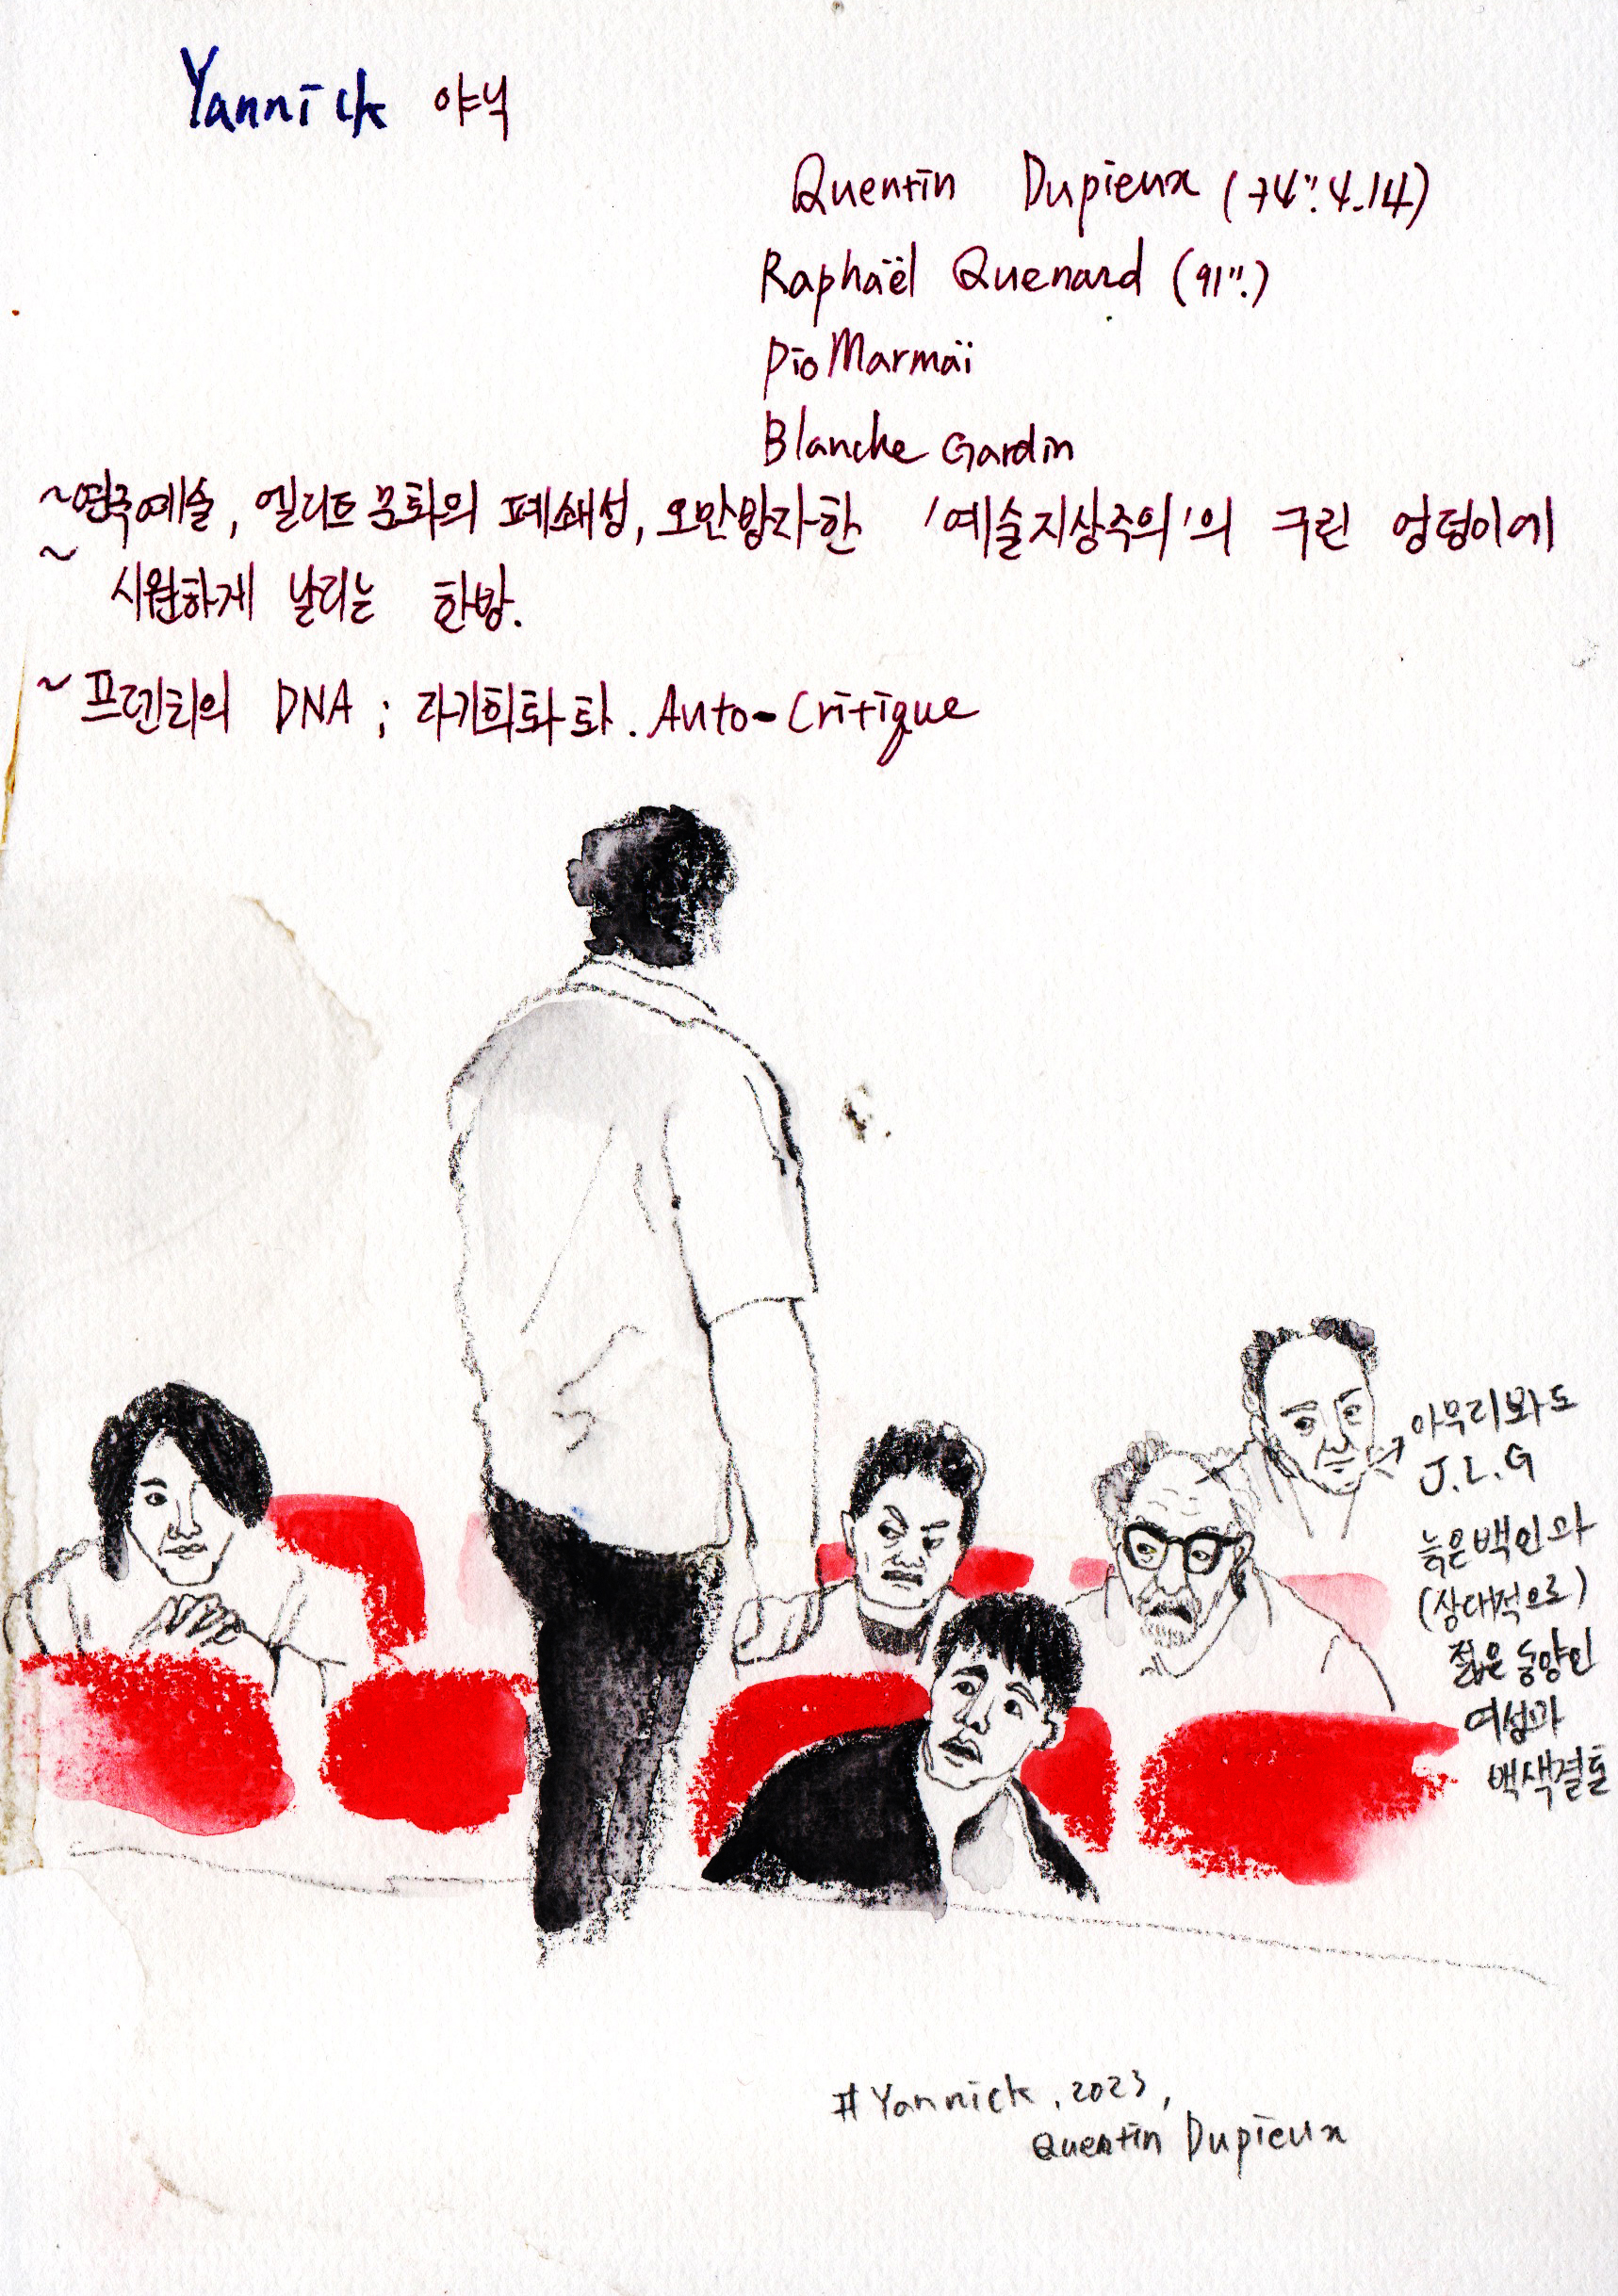 Yannick 야닉
Quentin Dupieux (74". 4.14)
Raphaël Quenard (91".)
Pio Marmaï
Blanche Gardin
~연극예술, 엘리트 문화의 폐쇄성, 오만방자한 '예술지상주의'의 구린 엉덩이에
~ 시원하게 날리는 한방.
~ 프렌치의 DNA ; 자기희화화. Auto-Critique
아무리봐도
J.L.G
늙은백인과
(상대적으로)
젊은 동양인
여성과
백색결돌
#Yannick, 2023,
Quentin Dupieux